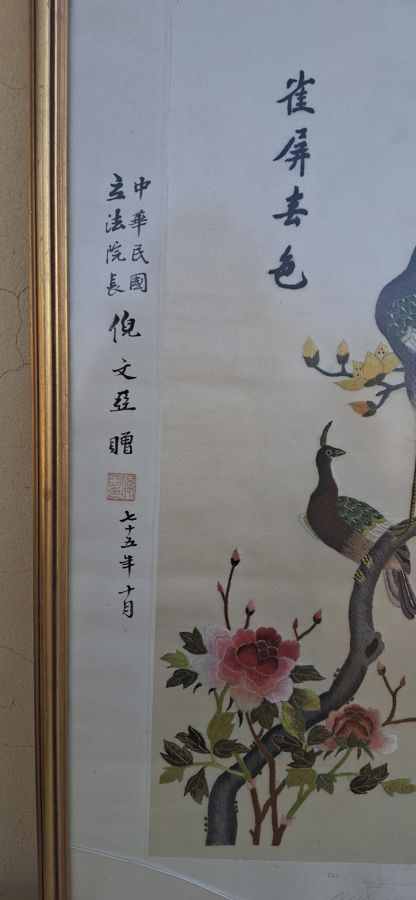 雀屏春色
中華民國
立法院長
倪文亞 贈
七十五年十月